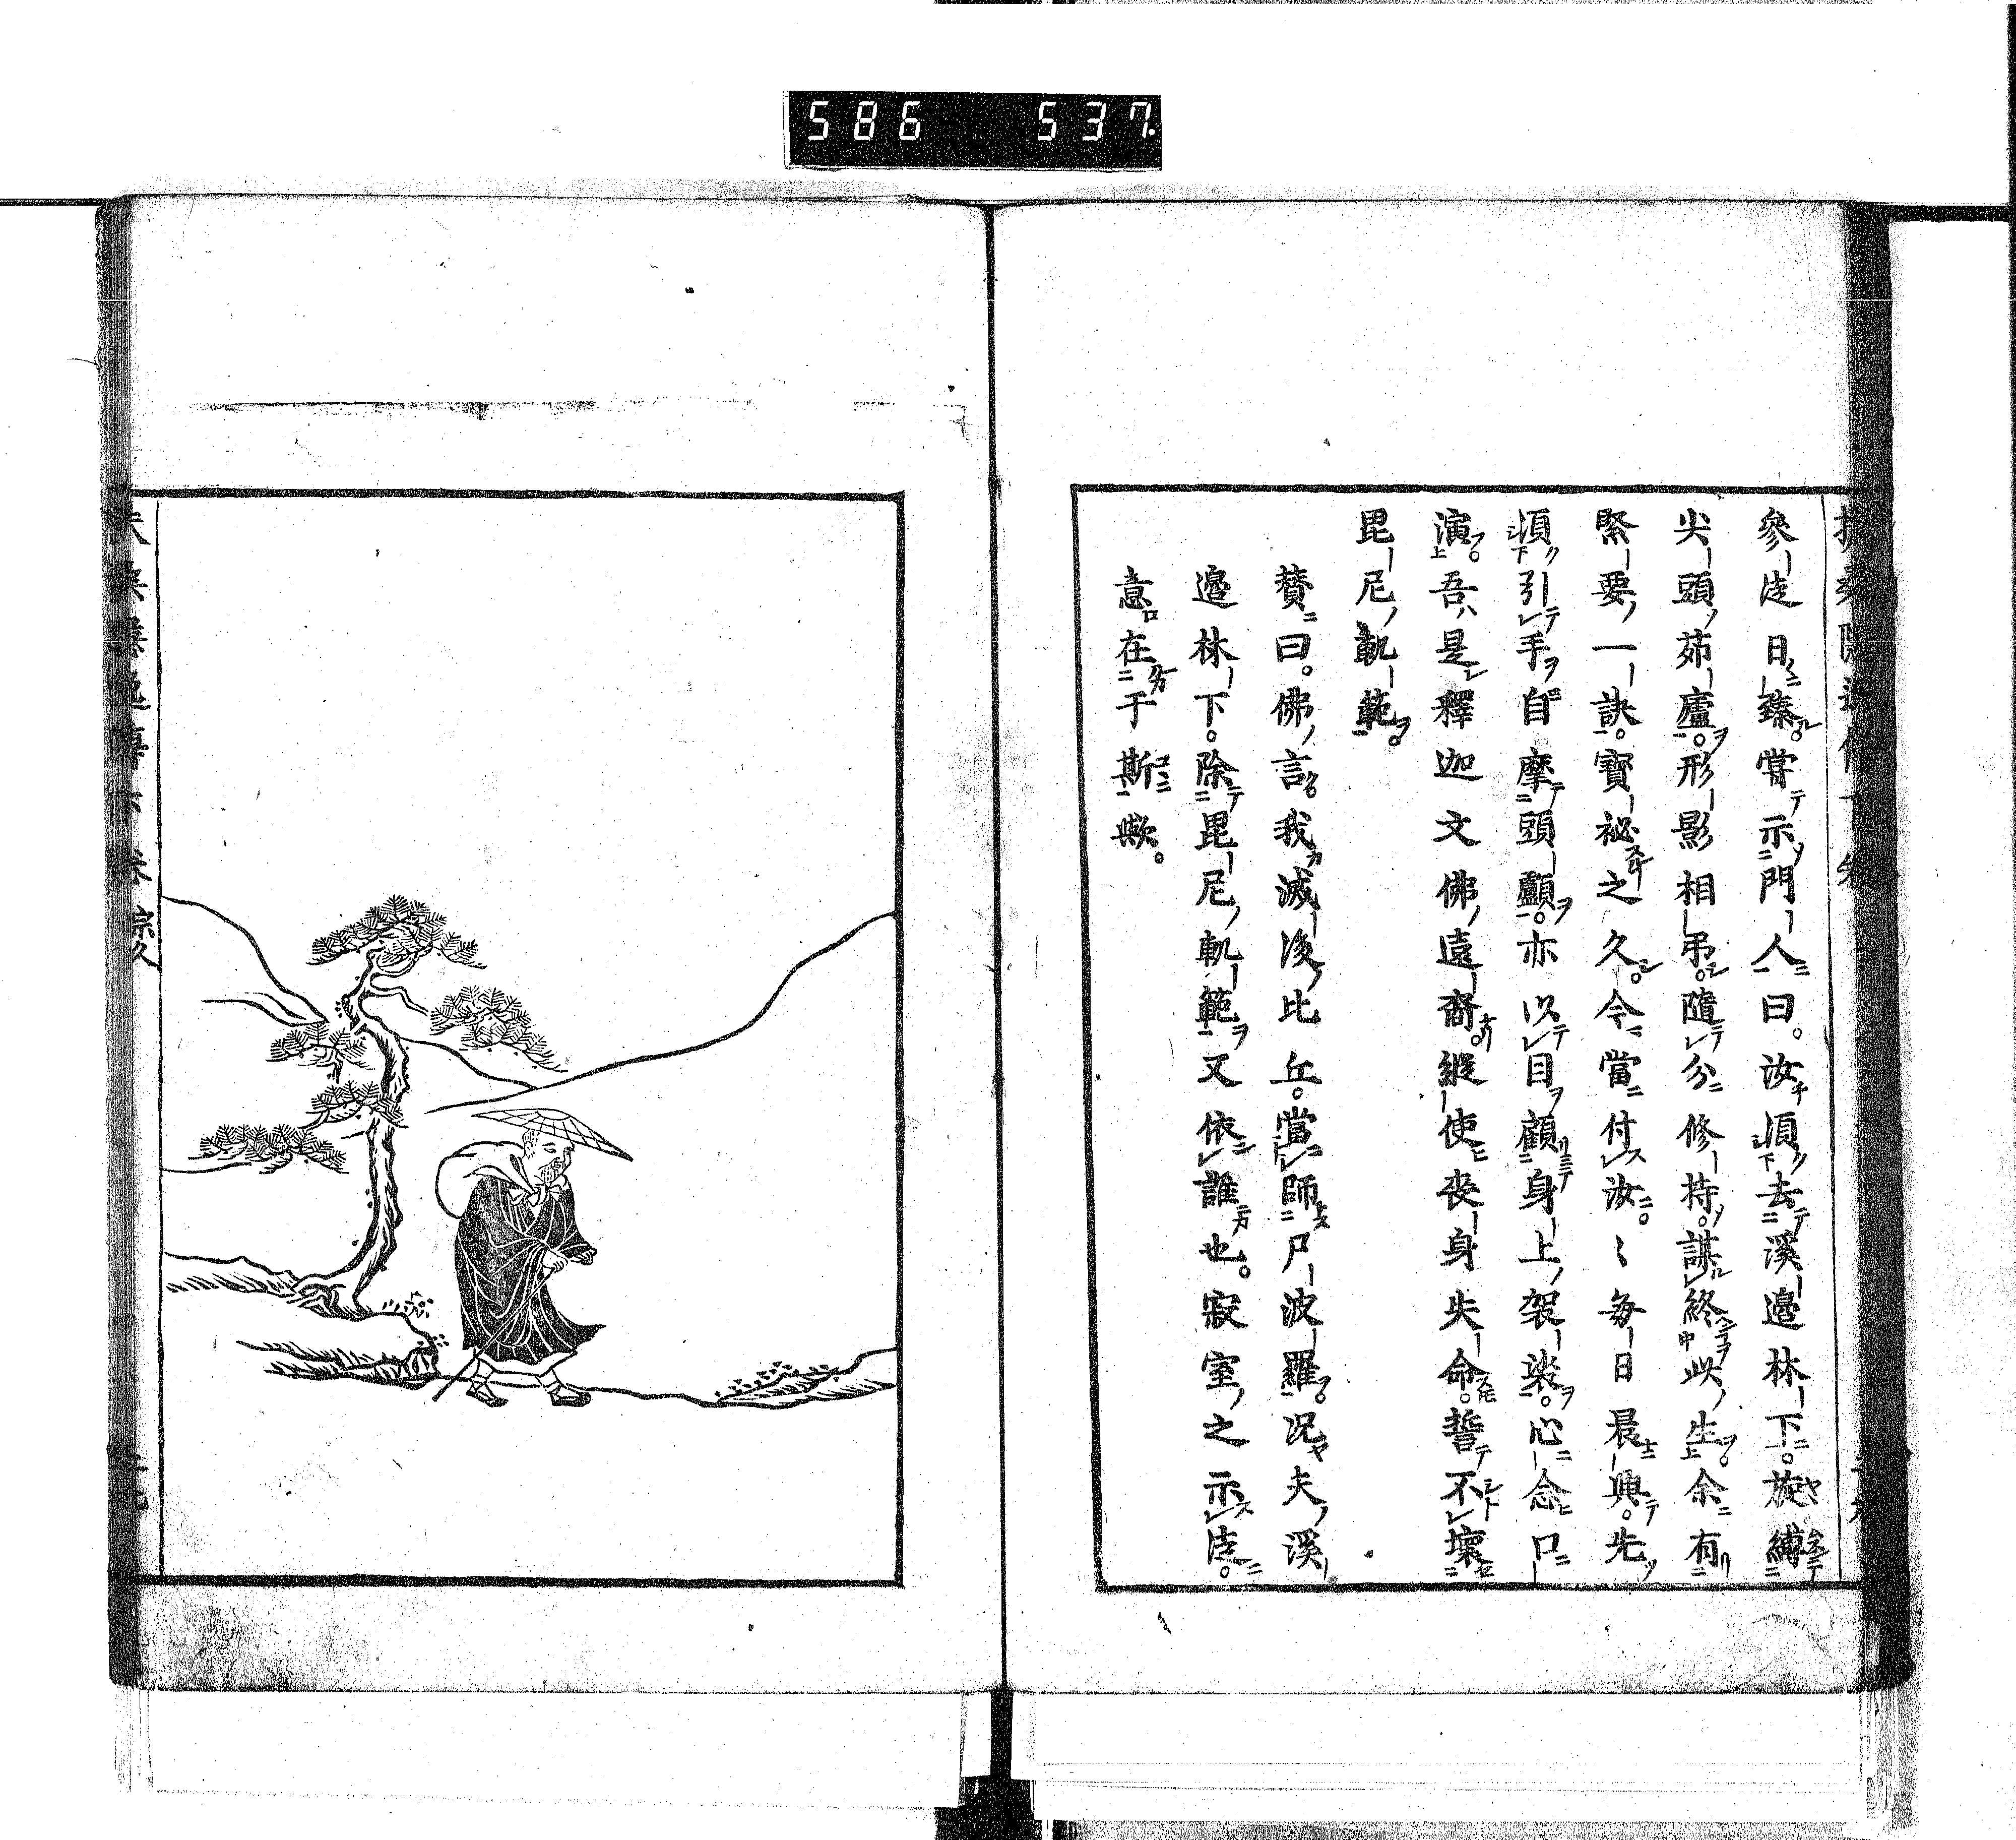 586 537.
參徒日臻。嘗示門人曰。汝須去溪邊林下。旋縛
尖頭茆廬。形影相弔。隨分修持。謀終此生。余有
緊要一訣。寶祕之久。今當付汝。〻每日晨興。先
須引手自摩頭顱。亦以目顧身上袈裟。心念口
演。吾是釋迦文佛遠裔。縱使喪身失命。誓不壞
毘尼軌範。
贊曰。佛言。我滅後比丘。當師尸波羅。況夫溪
邊林下。除毘尼軌範。又依誰也。寂室之示徒。
意在于斯歟。
扶桑隱逸傳下卷
扶桑隱逸傳下卷 宗久